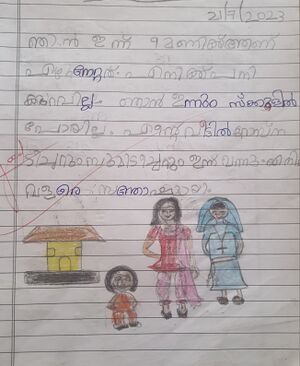 21/7/2023
ഞാൻ ഇന്ന് 9 മണിക്ക്ആണ്
എഴുന്നേറ്റത് എനിക്ക് പനി
കുറവില്ല. ഞാൻ ഇന്നും സ്ക്കൂളിൽ
പോയില്ല. എന്റെ വീട്ടിൽ
ടീച്ചറും ഇന്ന് വന്നു. എനിക്ക്
വളരെ സന്തോഷമായി.